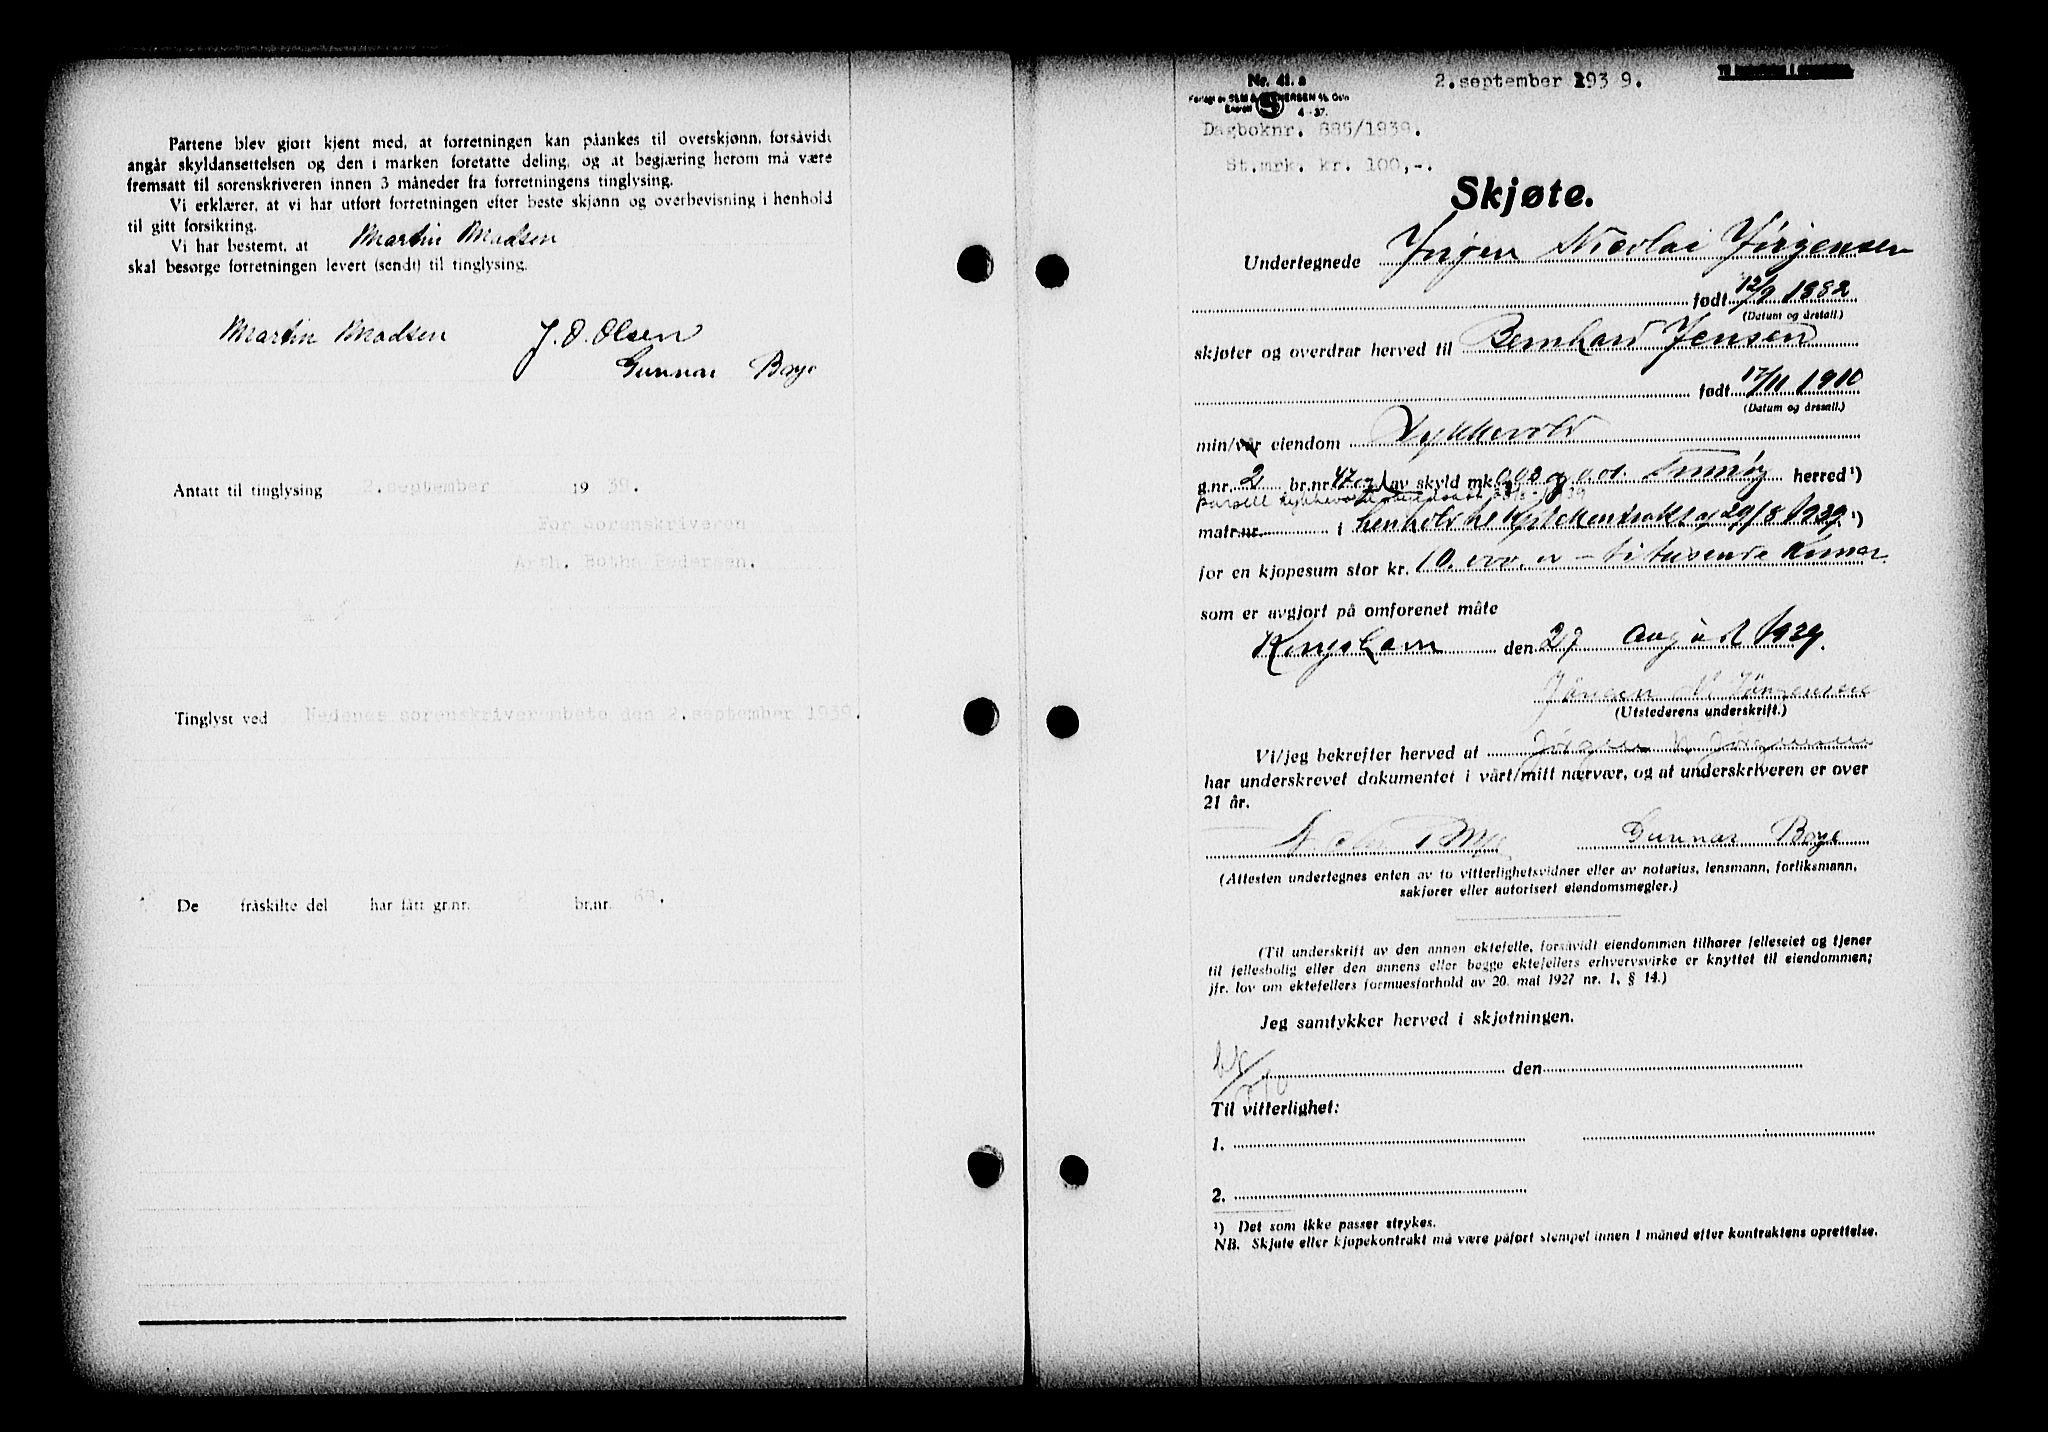 Partene blev gjort kjent med, at forretningen kan påankes til overskjønn, forsåvidt
angår skyldansettelsen og den i marken foretatte deling, og at begjæring herom må være
fremsatt til sorenskriveren innen 3 måneder fra forretningens tinglysing.
Vi erklærer, at vi har utført forretningen efter beste skjønn og overbevisning i henhold
til gitt forsikting.
Vi har bestemt, at Martin Madsen
skal besørge forretningen levert (sendt) til tinglysing.
Martin Madsen J. O. Olsen
Gunnar Boye
Antatt til tinglysing 2.september 19 39.
For sorenskriveren
Arth. Botha Pedersen.
Tinglyst ved Nedenes sorenskriverembete den 2.september 1939.
De fråskilte del har fått gr.nr. 2 br.nr. 68.
Nr. 41. a
2.september 1939.
4-37.
Dagboknr. 885/1939.
St.mrk. kr. 100,-.
Skjøte.
Undertegnede Jørgen Nicolai Jørgensen
født 12/9 1882
(Datum og årstall.)
skjøter og overdrar herved til Bernhard Jensen
født 17/11 1910
(Datum og årstall.)
min/vår eiendom Lykkevold
g.nr. 2 br.nr. 47 og av skyld mk. 0.03 og Tromøy herred¹)
matr.nr. i henhold til 29/8 1939 ¹)
for en kjøpesum stor kr. 10.000.00 – titusende Kroner
som er avgjort på omforenet måte
Kongshavn den 29 august 1939.
Jørgen N. Jørgensen
(Utstederens underskrift.)
Vi/jeg bekrefter herved at Jørgen N. Jørgensen
har underskrevet dokumentet i vårt/mitt nærvær, og at underskriveren er over
21 år.
Gunnar Boye
(Attesten undertegnes enten av to vitterlighetsvidner eller av notarius, lensmann, forliksmann,
sakfører eller autorisert eiendomsmegler.)
(Til underskrift av den annen ektefelle, forsåvidt eiendommen tilhører felleseiet og tjener
til fellesbolig eller den annens eller begge ektefellers erhvervsvirke er knyttet til eiendommen;
jfr. lov om ektefellers formuesforhold av 20. mai 1927 nr. 1, § 14.)
Jeg samtykker herved i skjøtningen.
den
Til vitterlighet:
1.
2.
¹) Det som ikke passer strykes.
NB. Skjøte eller kjøpekontrakt må være påført stempel innen 1 måned efter kontraktens oprettelse.